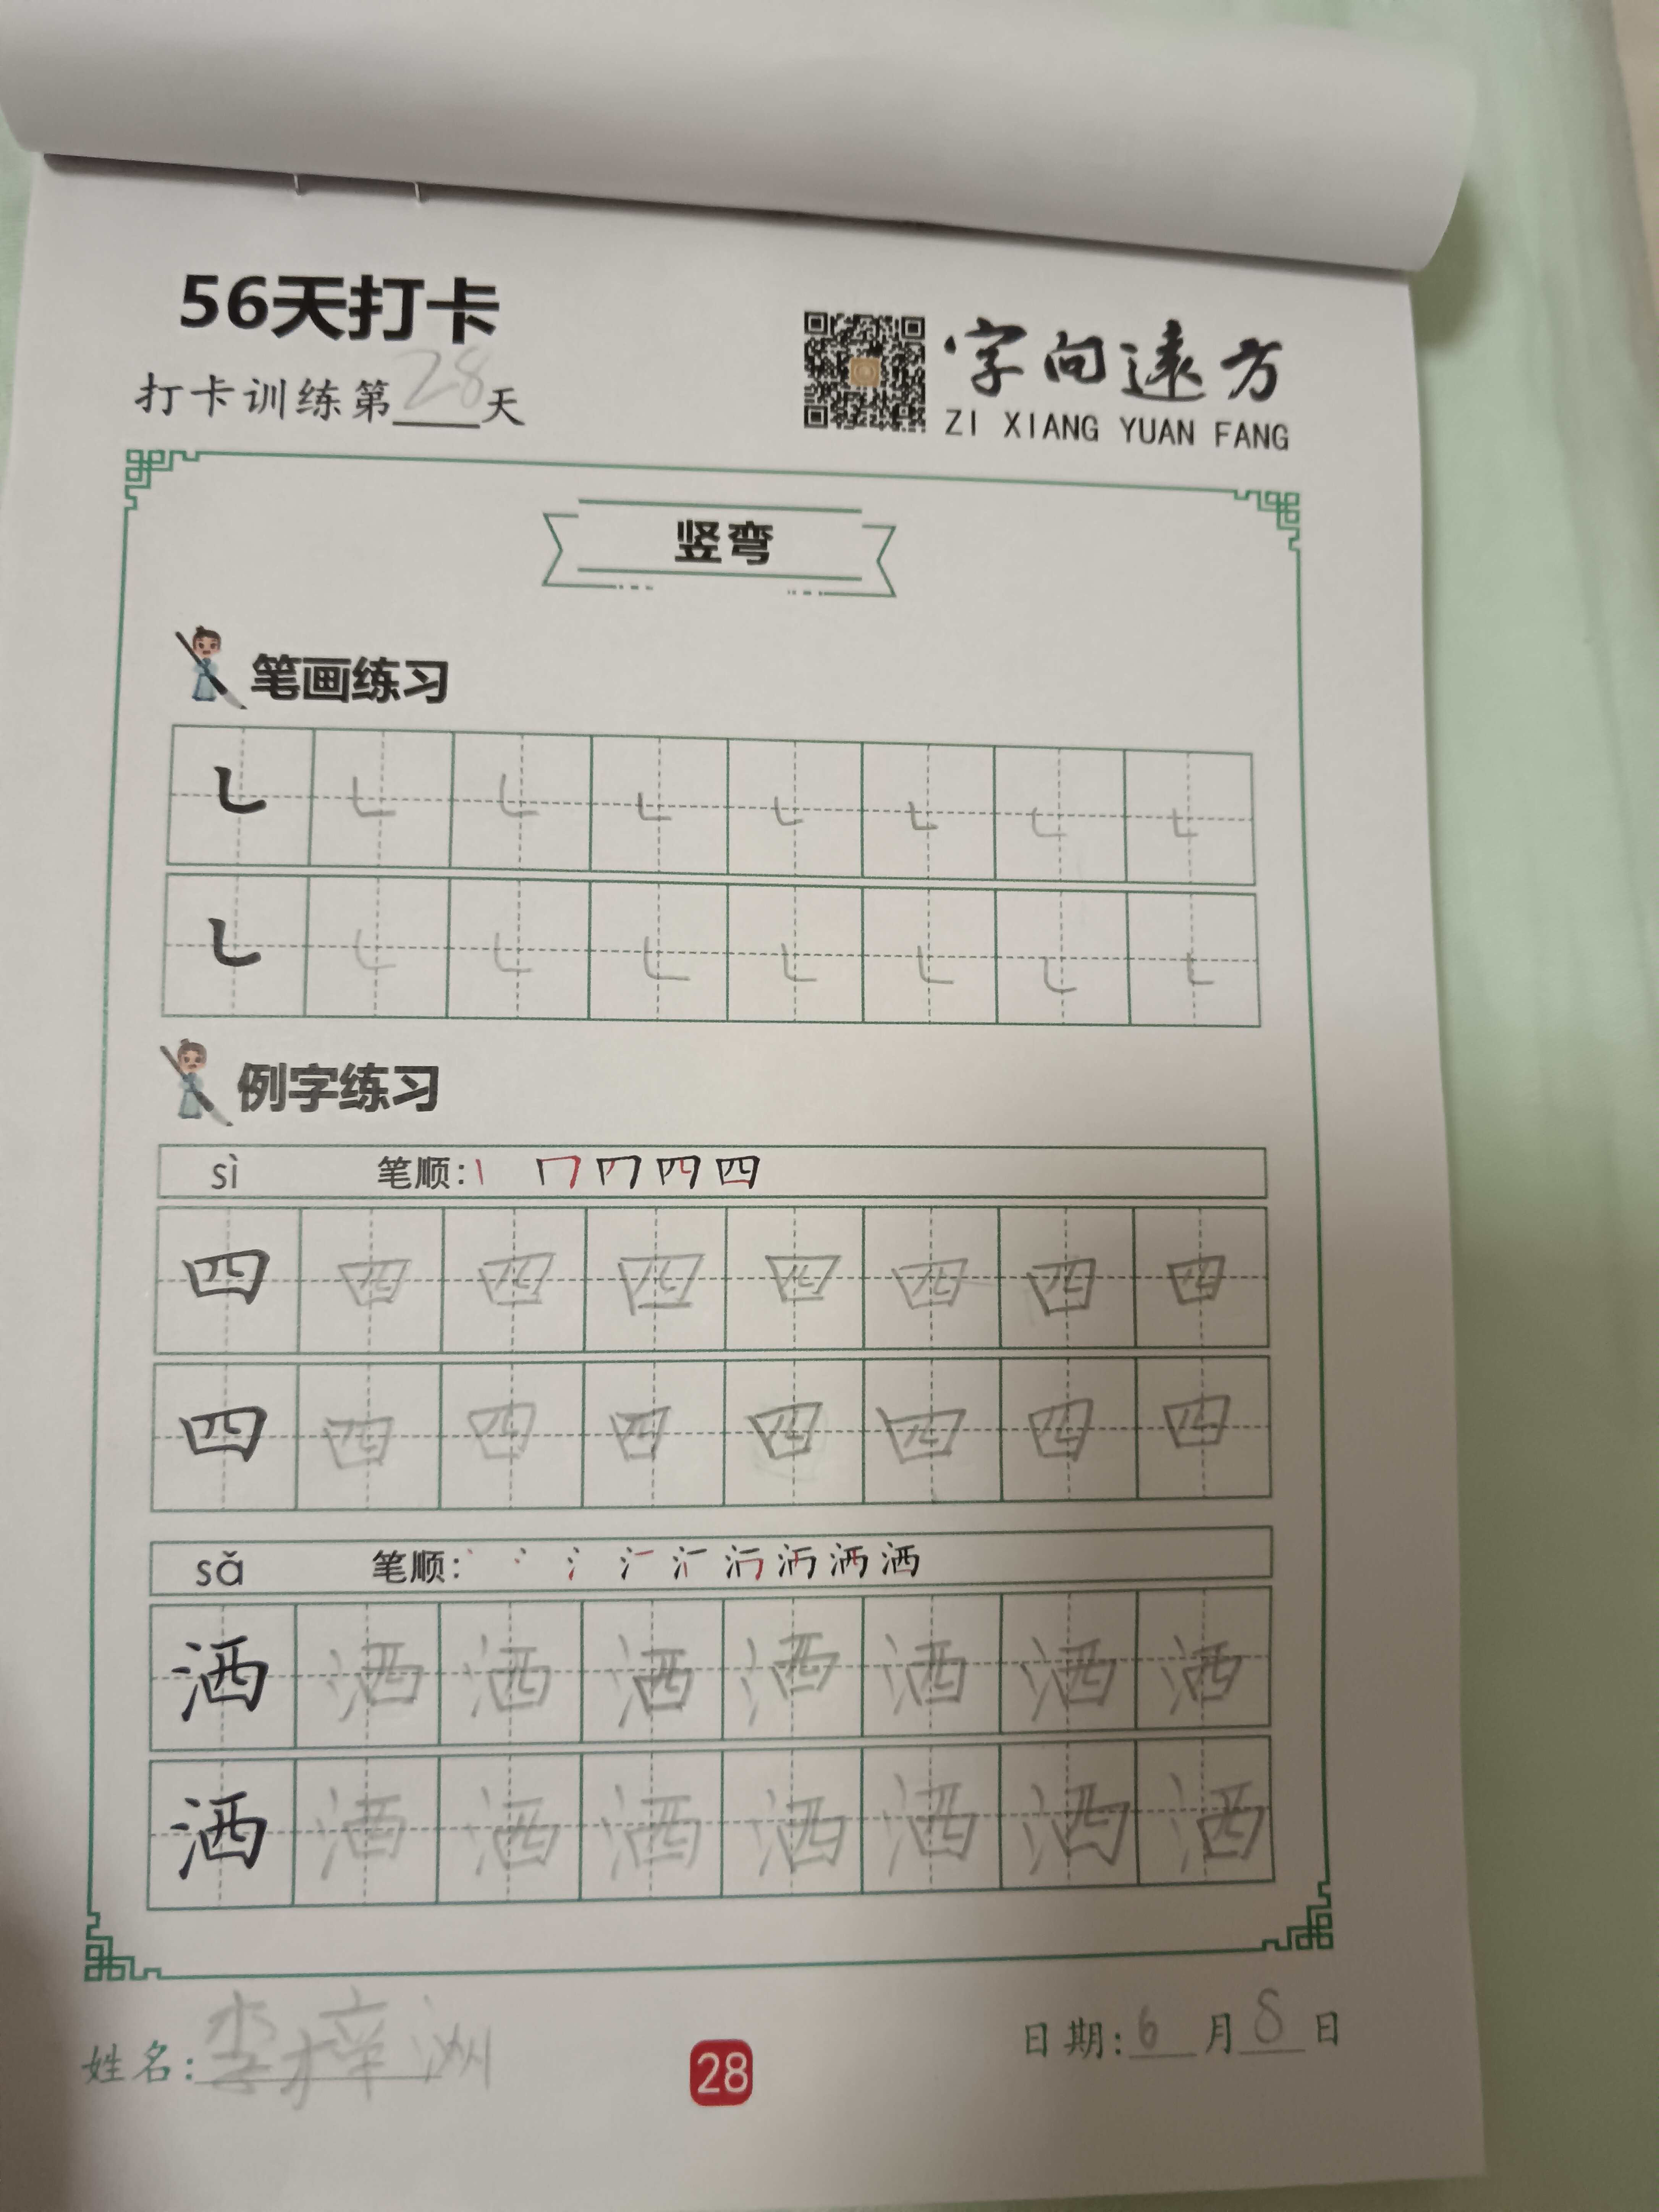 56天打卡
打卡训练第28天
字向遠方
ZI XIANG YUAN FANG
竖弯
笔画练习
㇄ ㇄ ㇄ ㇄ ㇄ ㇄ ㇄ ㇄
㇄ ㇄ ㇄ ㇄ ㇄ ㇄ ㇄ ㇄
例字练习
sì 笔顺: 四
四 四 四 四 四 四 四 四
四 四 四 四 四 四 四 四
sǎ 笔顺: 洒
洒 洒 洒 洒 洒 洒 洒 洒
洒 洒 洒 洒 洒 洒 洒 洒
姓名: 李梓洲
28
日期: 6 月 8 日